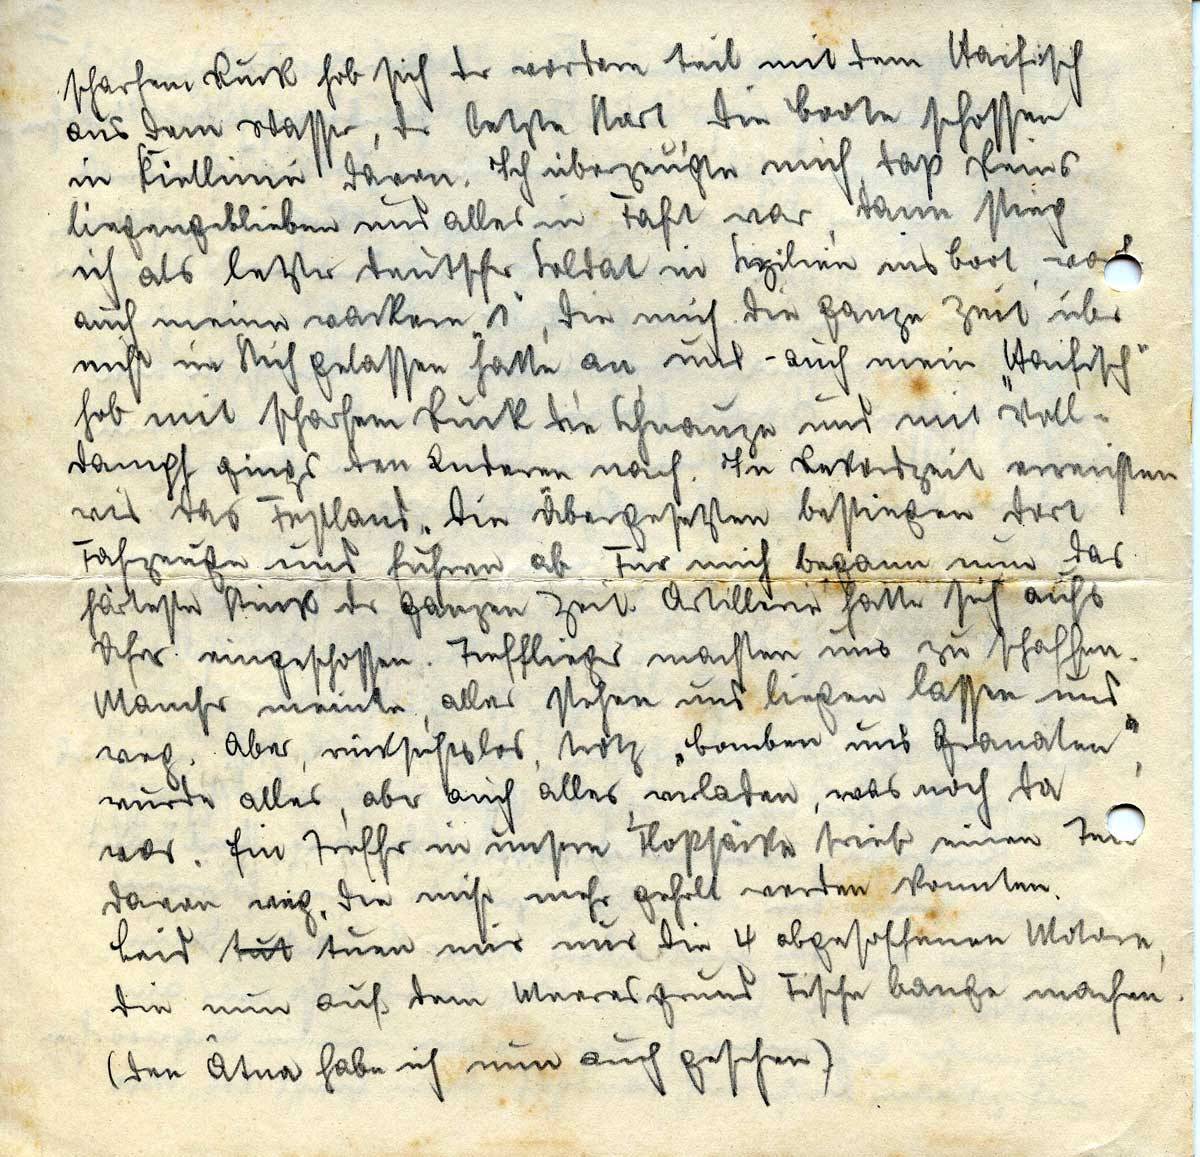 scharfem Ruck hob sich der vordere Teil mit dem Haifisch
aus dem Wasser, der letzte Start, die Boote schossen
in Kiellinie davon. Ich überzeugte mich, daß keins
liegengeblieben und alles in Fahrt war, dann stieg
ich als letzter deutscher Soldat in Sizilien ins Boot, warf
auch meine wackere "1", die mich die ganze Zeit über
nicht im Stich gelassen hatte an, und - auch mein „Haifisch"
hob mit scharfem Ruck die Schnauze und mit Voll-
dampf gings den Anderen nach. In Rekordzeit erreichten
wir das Festland. Die Übergesetzten bestiegen dort
Fahrzeuge und fuhren ab. Für mich begann nun das
härteste Stück der ganzen Zeit. Artillerie hatte sich aufs
Ufer eingeschossen. Tiefflieger machten uns zu schaffen.
Mancher meinte, alles stehen und liegen lassen und
weg. Aber, rücksichtslos, trotz „Bomben und Granaten",
wurde alles, aber auch alles, verladen, was noch da
war. Ein Treffer in unsere trieb einen Teil
davon weg, die nicht mehr geholt werden konnten.
Leid tut tuen mir nur die 4 abgesoffenen Motore,
die nun auf dem Meeresgrund Fische bange machen.
(Den Ätna habe ich nun auch gesehen)